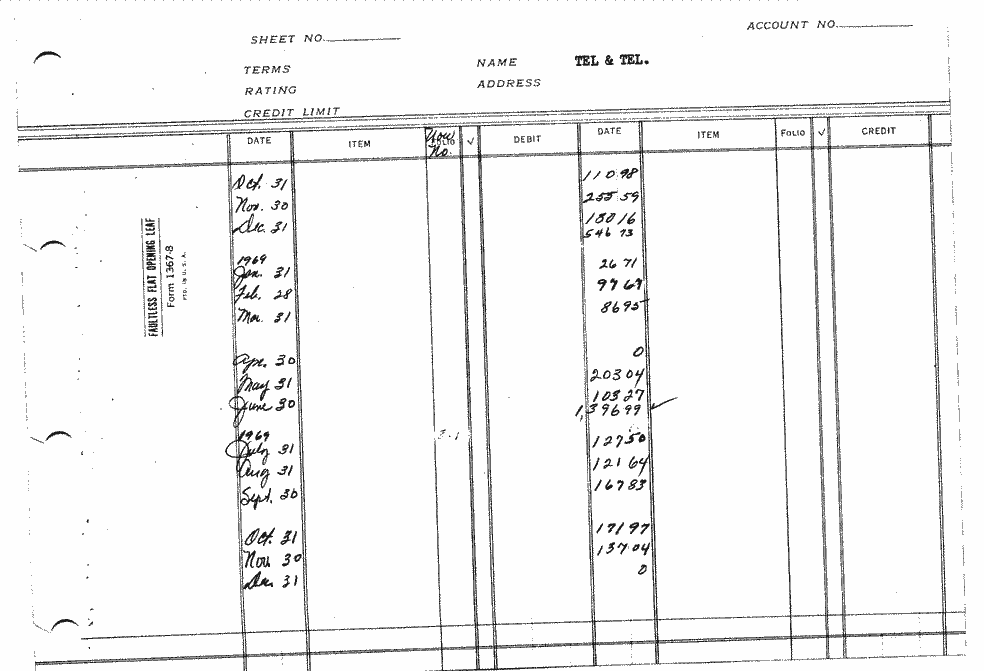 SHEET NO.
ACCOUNT NO.
TERMS
NAME TEL & TEL.
RATING
ADDRESS
CREDIT LIMIT
DATE ITEM FOLIO √ DEBIT DATE ITEM FOLIO √ CREDIT
No.
Oct. 31 110 98
Nov. 30 255 59
Dec. 31 180 16
546 73
1969
Jan. 31 26 71
Feb. 28 97 69
Mar. 31 86 95
Apr. 30 0
May 31 203 04
June 30 103 27
1,396 99 ✓
1969
July 31 127 50
Aug 31 121 64
Sept. 30 167 83
Oct. 31 171 97
Nov. 30 137 04
Dec. 31 0
FAULTLESS FLAT OPENING LEAF
Form 1367-8
PTD. IN U.S.A.